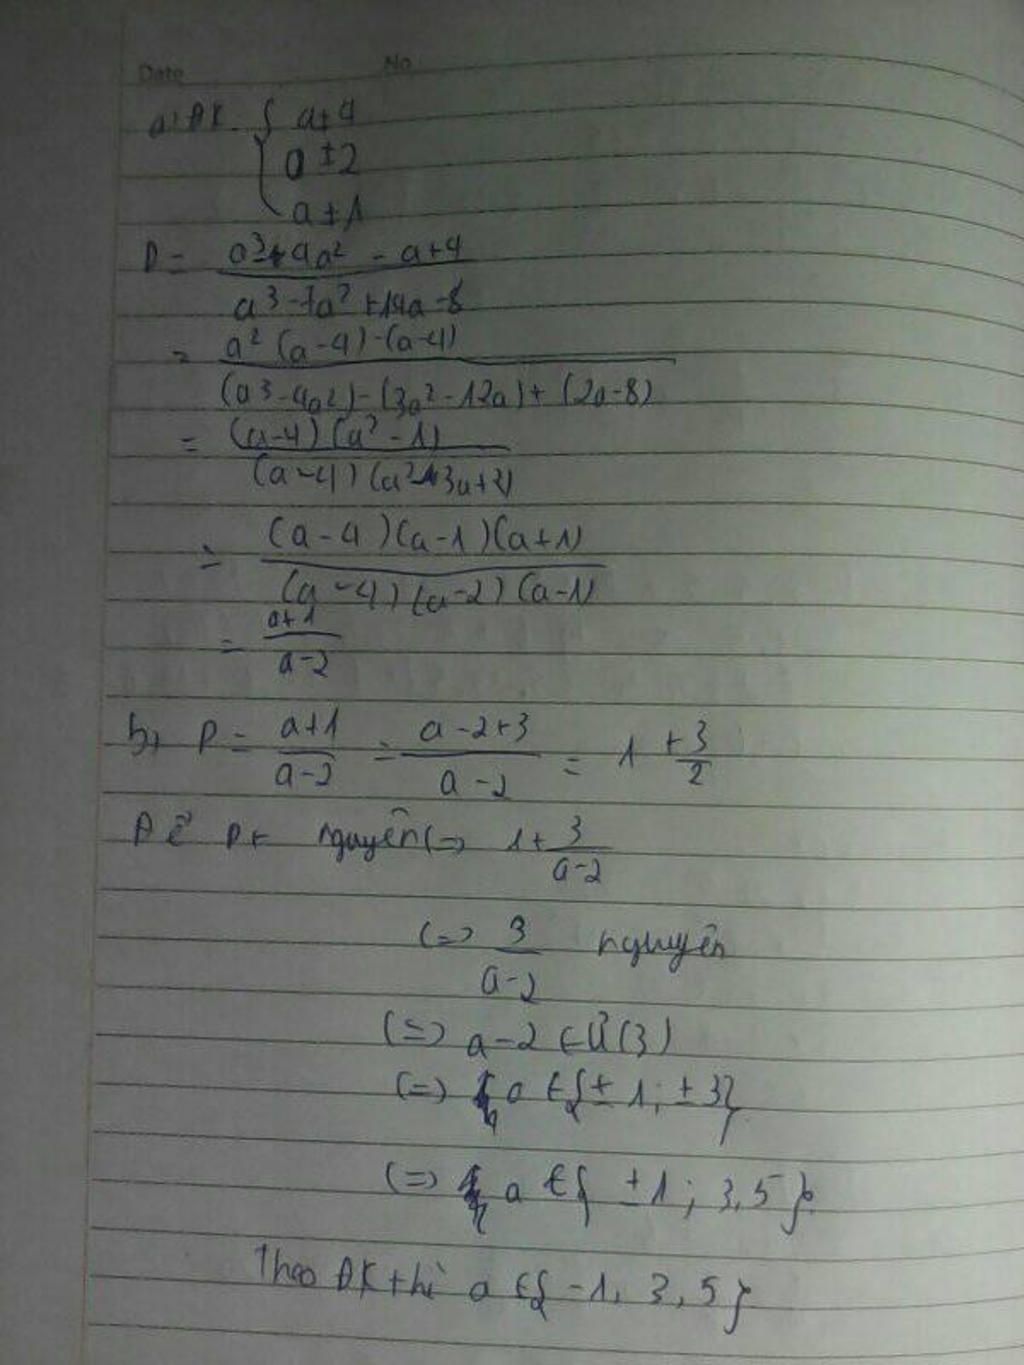 Date No
a) ĐK { a ≠ 4
a ≠ 2
a ≠ 1
P = \frac{a³ - 4a² - a + 4}{a³ - 7a² + 14a - 8}
= \frac{a² (a - 4) - (a - 4)}{(a³ - 4a²) - (3a² - 12a) + (2a - 8)}
= \frac{(a - 4) (a² - 1)}{(a - 4) (a² - 3a + 2)}
= \frac{(a - 4)(a - 1)(a + 1)}{(a - 4)(a - 2)(a - 1)}
= \frac{a + 1}{a - 2}
b, P = \frac{a + 1}{a - 2} = \frac{a - 2 + 3}{a - 2} = 1 + \frac{3}{2}
Để P t nguyên (=) 1 + \frac{3}{a - 2}
(=) \frac{3}{a - 2} nguyên
(=) a - 2 ∈ Ư(3)
(=) a ∈ { ± 1 ; ± 3}
(=) a ∈ { ± 1 ; 3, 5 }
Theo ĐK thì a ∈ { -1, 3, 5 }